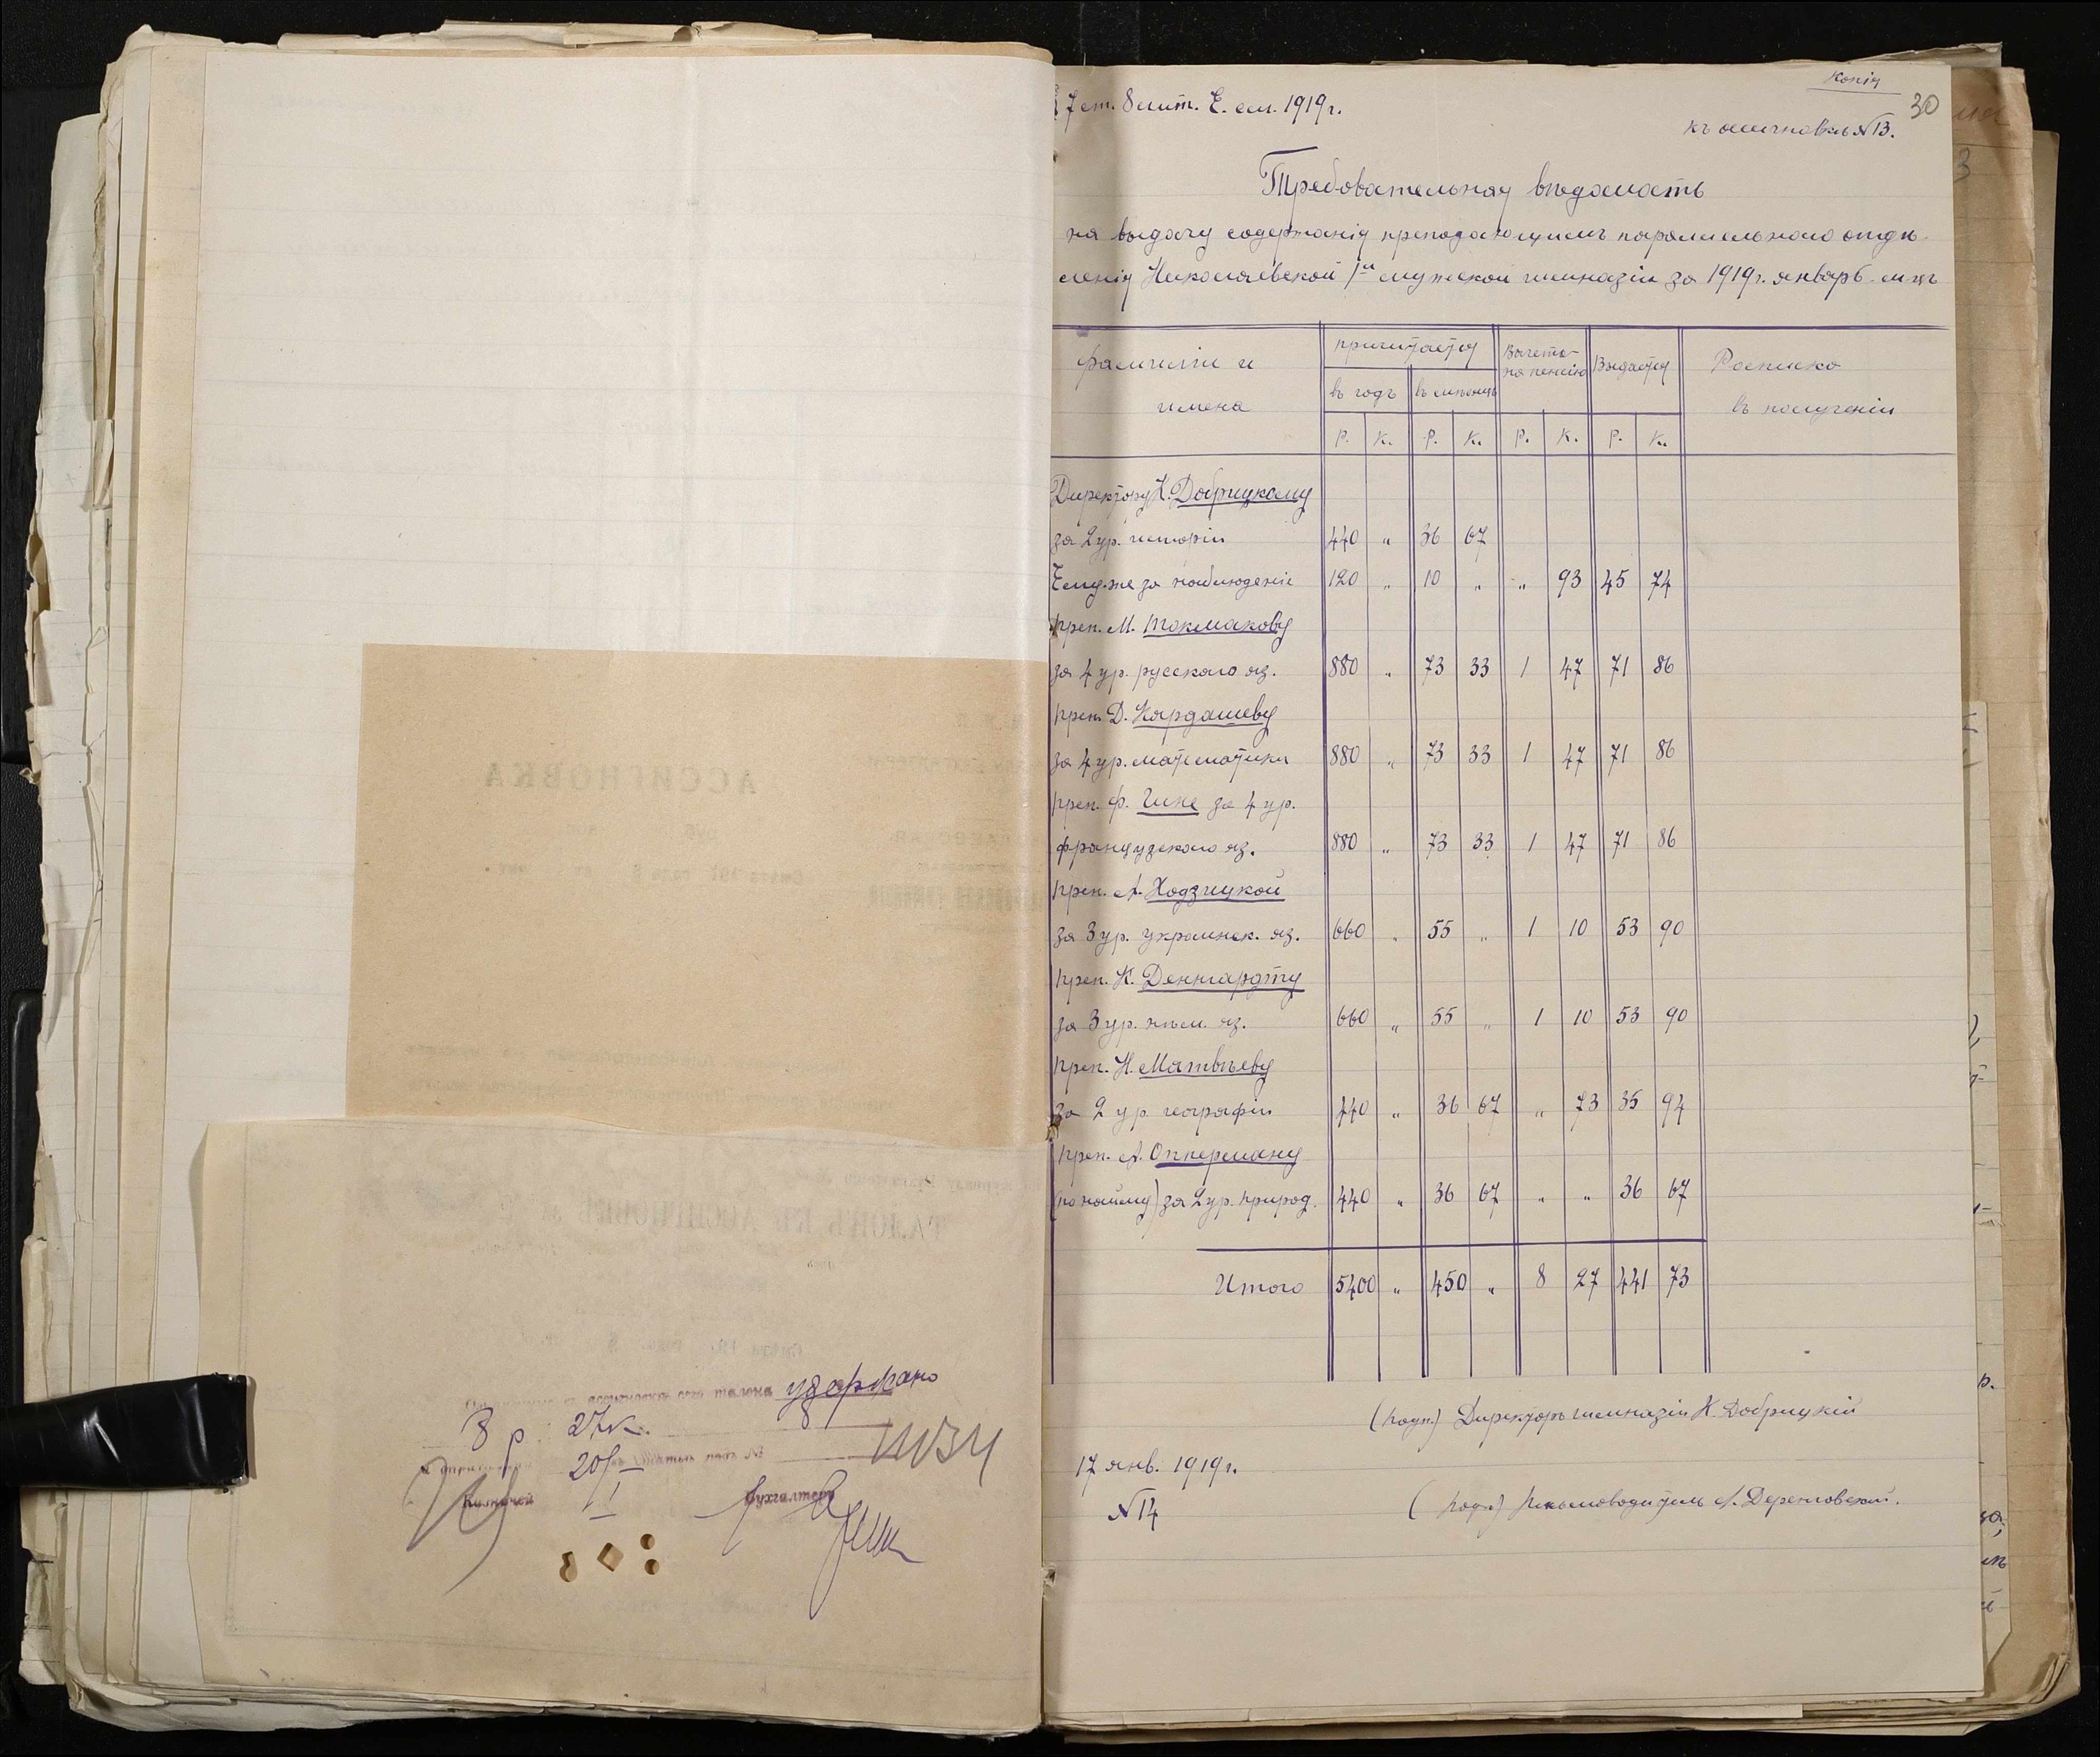 удержано
8 р. 27 к.
20/I
Бухгалтеръ
Копія
30
§ 7 ст. 8 лит. Е. см. 1919 г.
къ ассигновкѣ № 13.
Требовательная вѣдомость
на выдачу содержанія преподающимъ параллельнаго отдѣ-
ленія Николаевской 1й мужской гимназіи за 1919 г. январь м-цъ
Фамиліи и имена | причитается | Вычета на пенсію | Выдается | Росписка въ полученіи
въ годъ | въ мѣсяцъ
Р. | К. | Р. | К. | Р. | К. | Р. | К.
Директору Н. Добрицкому
за 2 ур. исторіи 440 " 36 67
Ему-же за наблюденіе 120 " 10 " " 93 45 74
преп. М. Токмакову
за 4 ур. русскаго яз. 880 " 73 33 1 47 71 86
преп. Д. Кардашеву
за 4 ур. математики 880 " 73 33 1 47 71 86
преп. Ф. Гике за 4 ур.
французскаго яз. 880 " 73 33 1 47 71 86
преп. А. Ходзицкой
за 3 ур. украинск. яз. 660 " 55 " 1 10 53 90
преп. К. Деннгардту
за 3 ур. нѣм. яз. 660 " 55 " 1 10 53 90
преп. Н. Матвѣеву
за 2 ур. географіи 440 " 36 67 " 73 35 94
преп. А. Опперману
(по найму) за 2 ур. природ. 440 " 36 67 " " 36 67
Итого 5400 " 450 " 8 27 441 73
(подп.) Директоръ гимназіи Н. Добрицкій
17 янв. 1919 г.
№ 14
(подп.) Письмоводитель